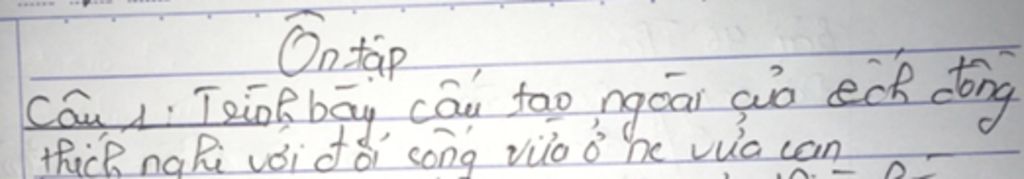 Ôn tập
Câu 1: Trình bày cấu tạo ngoài của ếch đồng
thích nghi với đời sống vừa ở nc vừa cạn